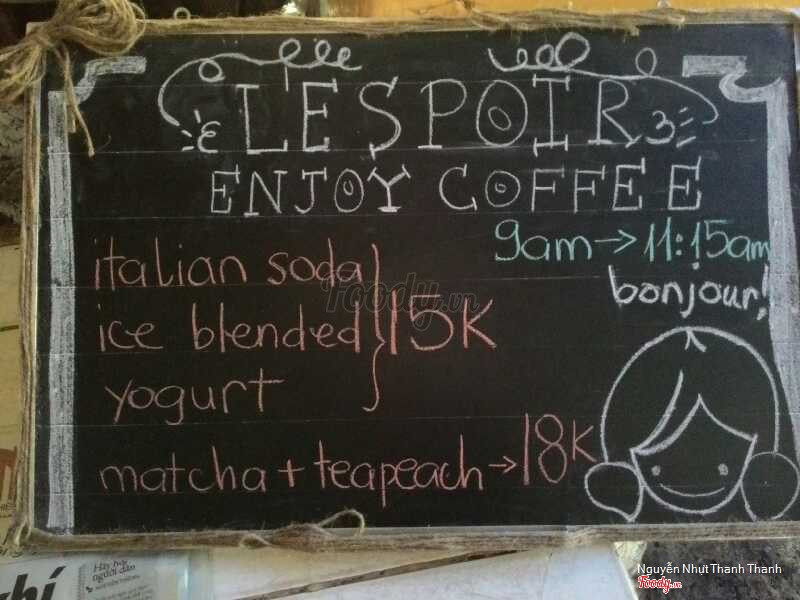 LESPOIR
ENJOY COFFEE
9am → 11:15am
bonjour!
italian soda
ice blended
yogurt
} 15K
matcha + teapeach → 18K
Foody.vn
Hãy hỏi
người dân
Nguyễn Nhựt Thanh Thanh
Foody.vn